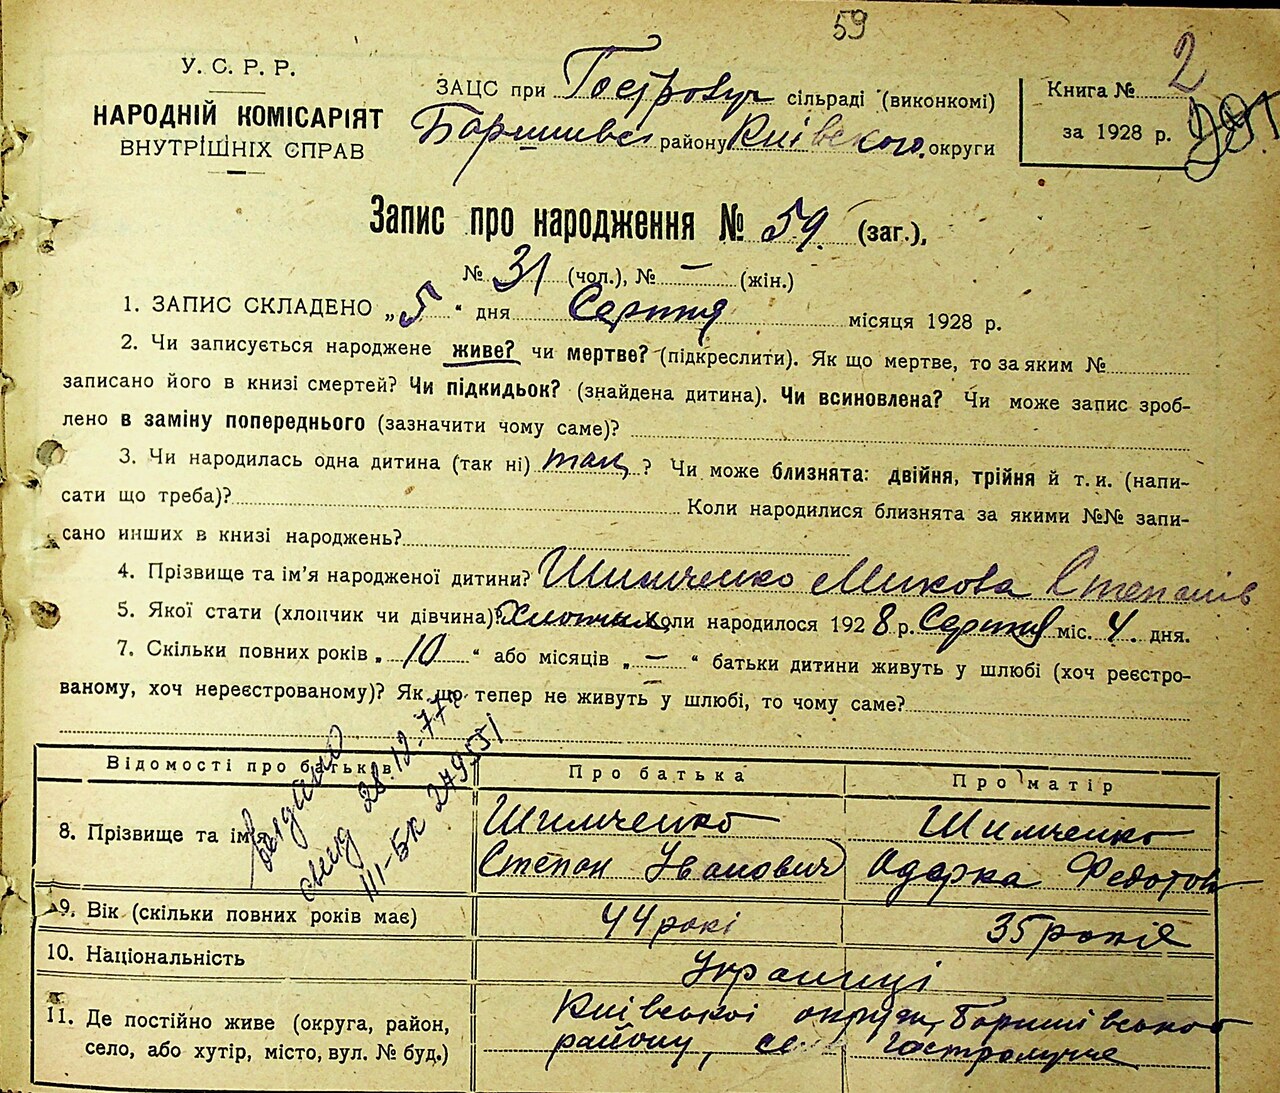 59
У. С. Р. Р.
НАРОДНІЙ КОМІСАРІЯТ
ВНУТРІШНІХ СПРАВ
ЗАЦС при Гостролуч сільраді (виконкомі)
Боришівс району Київского округи
Книга № 2
за 1928 р.
Запис про народження № 59. (заг.),
№ 31 (чол.), № — (жін.)
1. ЗАПИС СКЛАДЕНО „5“ дня Серпня місяця 1928 р.
2. Чи записується народжене живе? чи мертве? (підкреслити). Як що мертве, то за яким №
записано його в книзі смертей? Чи підкидьок? (знайдена дитина). Чи всиновлена? Чи може запис зроб-
лено в заміну попереднього (зазначити чому саме)?
3. Чи народилась одна дитина (так ні) так ? Чи може близнята: двійня, трійня й т. и. (напи-
сати що треба)? Коли народилися близнята за якими №№ запи-
сано инших в книзі народжень?
4. Прізвище та ім’я народженої дитини? Шимченко Микола Степанів
5. Якої стати (хлопчик чи дівчина)? Хлопчик Коли народилося 1928 р. Серпня міс. 4. дня.
7. Скільки повних років „ 10 “ або місяців „ — “ батьки дитини живуть у шлюбі (хоч реєстро-
ваному, хоч нереєстрованому)? Як що тепер не живуть у шлюбі, то чому саме?
Відомості про батьків
Про батька
Про матір
8. Прізвище та ім’я
Шимченко
Степан Уванович
Шимченко
Одарка Федотов
видано
свид 28.12-77г
III-БК 279551
9. Вік (скільки повних років має)
44 рокі
35 років
10. Національність
Украінці
11. Де постійно живе (округа, район,
село, або хутір, місто, вул. № буд.)
Киівськоі округи, Боришівського
району, село Гостролуччє